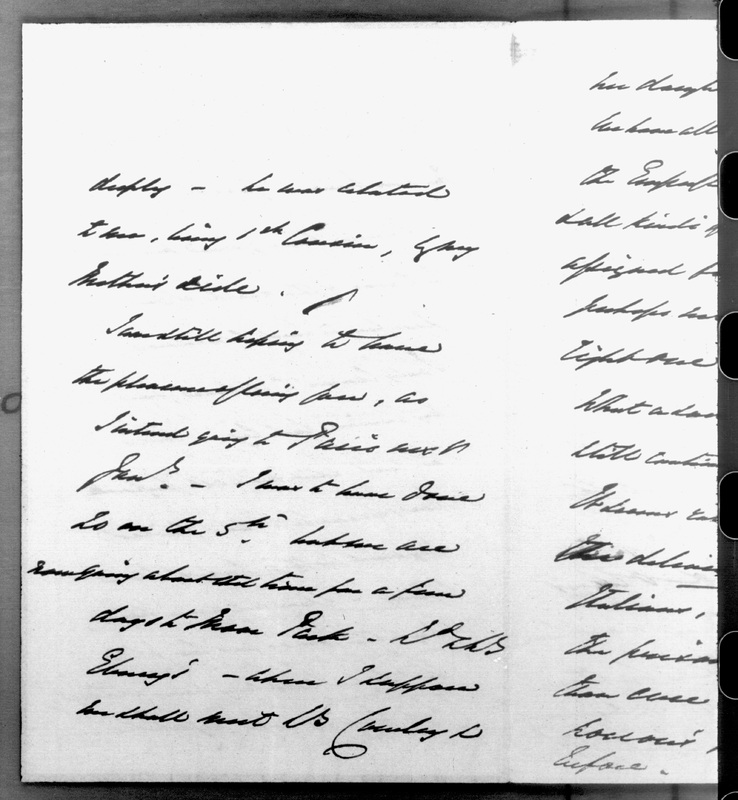 deeply - he was related
to me, being 1st Cousin, by my
Mother's Side.
I am still hoping to have
the pleasure of seeing you, as
I intend going to Paris next
Jany. - I was to have done
so on the 5th. but we are
now going about that time for a few
days to Moor Park - Ld
Ebury's - where I suppose
we shall meet Ly Cowley &
her daugh
we have all
the Emp
& all kinds of
assigned
perhaps
right one
What a
still contin
It seems
this
Italians,
the
than ever
honours
Enforce.